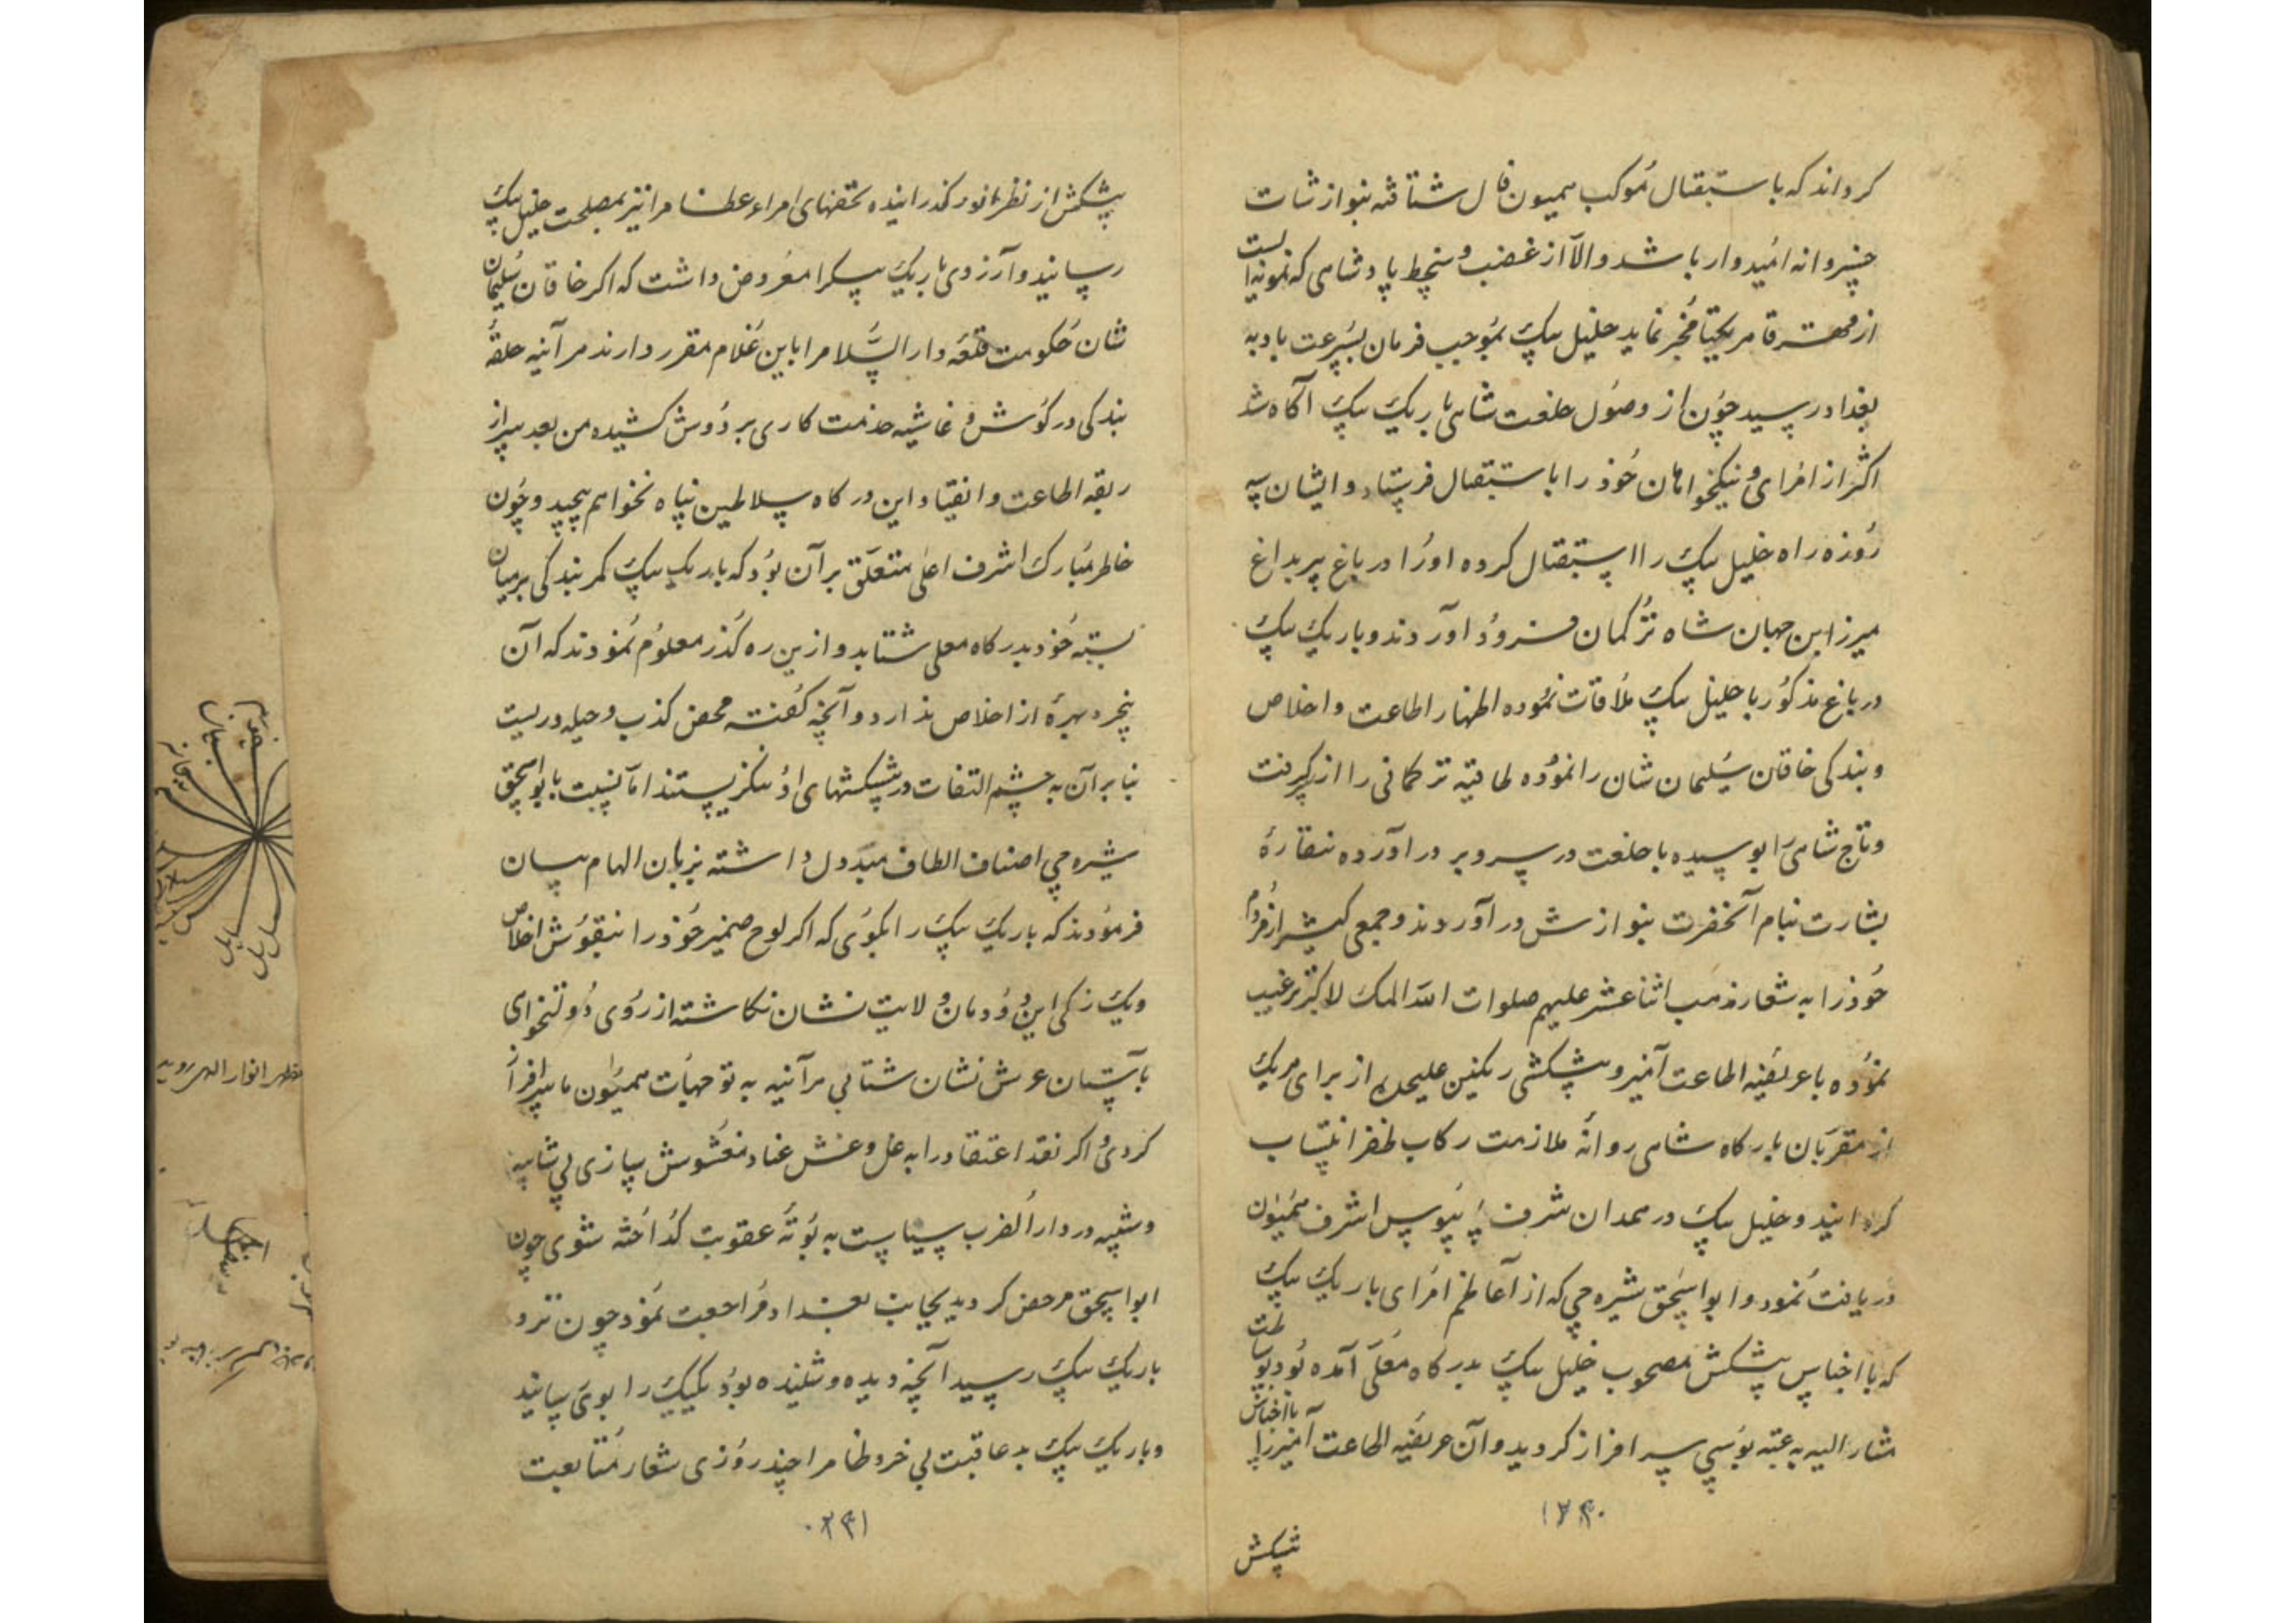 کرداند که باستقبال موکب همیون فال شتافته بنوازشات
خسروانه امیدوار باشد والا از غضب و سخط پادشاهی که نمونه ایست
از قهر قاهر یکتا مخبر نماید خلیل بیک بموجب فرمان بسرعت باد به
بغداد رسید چون از وصول خلعت شاهی باریک بیک آکاه شد
اکثر از امرای و نیکخواهان خود را باستقبال فرستاد و ایشان سه
روزه راه خلیل بیک را استقبال کرده او را در باغ پیر بداغ
میرزا بن جهان شاه ترکمان فرود آوردند و باریک بیک
در باغ مذکور با خلیل بیک ملاقات نموده اظهار اطاعت و اخلاص
و بندکی خاقان سلیمان شان را نموده طاقیه ترکمانی را از سر کرفت
و تاج شاهی را بوسیده با خلعت در سر و بر در آورده نقاره
بشارت بنام آنحضرت بنوازش در آوردند و جمعی کثیر از مردم
خود را به شعار مذهب اثنا عشر علیهم صلوات الله الملک الاکبر ترغیب
نموده با عریضه اطاعت آمیز و پیشکشی رنکین علیحده از برای هریک
از مقربان بارکاه شاهی روانه ملازمت رکاب ظفر انتساب
کردانید و خلیل بیک در همدان شرف پای بوس اشرف همیون
دریافت نمود و ابو اسحق شیره چی که از اعاظم امرای باریک بیک
که با اجناس پیشکش مصحوب خلیل بیک بدرکاه معلی آمده بود بوساطت
مشار الیه به عتبه بوسی سرافراز کردید و آن عریضه اطاعت آمیز را با اجناس
۲۳۰
پیشکش
پیشکش از نظر انور کذرانیده تحفهای امراء عظام را نیز بمصلحت خلیل بیک
رسانید و آرزوی باریک بیک را معروض داشت که اکر خاقان سلیمان
شان حکومت قلعه دار السلام را باین غلام مقرر دارند هر آینه حلقه
بندکی در کوش و غاشیه خدمت کاری بر دوش کشیده من بعد سر از
ربقه اطاعت و انقیاد این درکاه سلاطین پناه نخواهم پیچید و چون
خاطر مبارک اشرف اعلی متعلق بر آن بود که باریک بیک کمر بندکی بر میان
بسته خود بدرکاه معلی شتابد و ازین ره کذر معلوم نمودند که آن
بهره از اخلاص ندارد و آنچه کفته محض کذب و حیله وریست
بنا بر آن به چشم التفات در پیشکشهای او ننکریستند اما نسبت بابو اسحق
شیره چی اصناف الطاف مبذول داشته بزبان الهام بیان
فرمودند که باریک بیک را بکوی که اکر لوح ضمیر خود را بنقوش اخلاص
و یک رنکی این دودمان ولایت نشان نکاشته از روی دولتخواهی
بآستان عرش نشان شتابی هر آینه به توجهات همیون ما سرافراز
کردی و اکر نقد اعتقاد را به غل و غش عناد مغشوش سازی بی شایبه
و شبهه در دار الضرب سیاست به بوته عقوبت کداخته شوی چون
ابو اسحق مرخص کردید بجانب بغداد مراجعت نمود چون نزد
باریک بیک رسید آنچه دیده و شنیده بود یک یک را بوی رسانید
و باریک بیک بد عاقبت بی خرد ظاهرا چند روزی شعار متابعت
۲۳۱